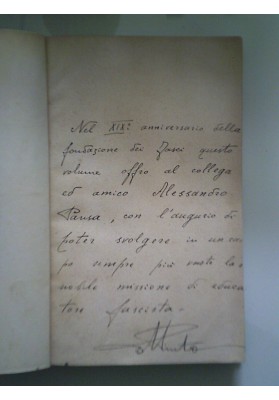 Nel XIX° anniversario della
fondazione dei Fasci questo
volume offro al collega
ed amico Alessandro
Pansa, con l'augurio di
poter svolgere in un cam
po sempre più vasto la s
nobile missione di educa
tore fascista -